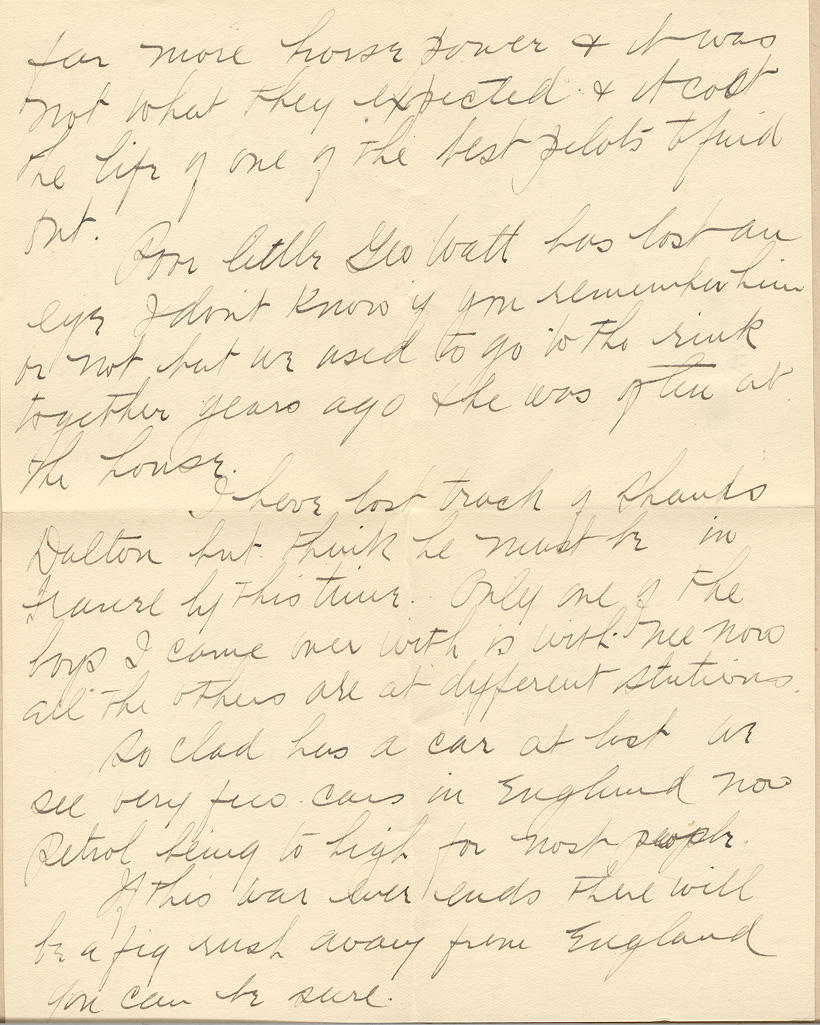 far more horse power & it was
not what they expected & it cost
the life of one of the best pilots to find
out.
Poor little Geo Watt has lost an
eye I don't know if you remember him
or not but we used to go to the rink
together years ago & he was often at
the house.
I have lost track of Shanks
Dalton but think he must be in
France by this time. Only one of the
boys I came over with is with me now
all the others are at different stations.
So Clad has a car at last we
see very few cars in England now
Petrol being to high for most people.
If this war ever ends there will
be a big rush away from England
you can be sure.